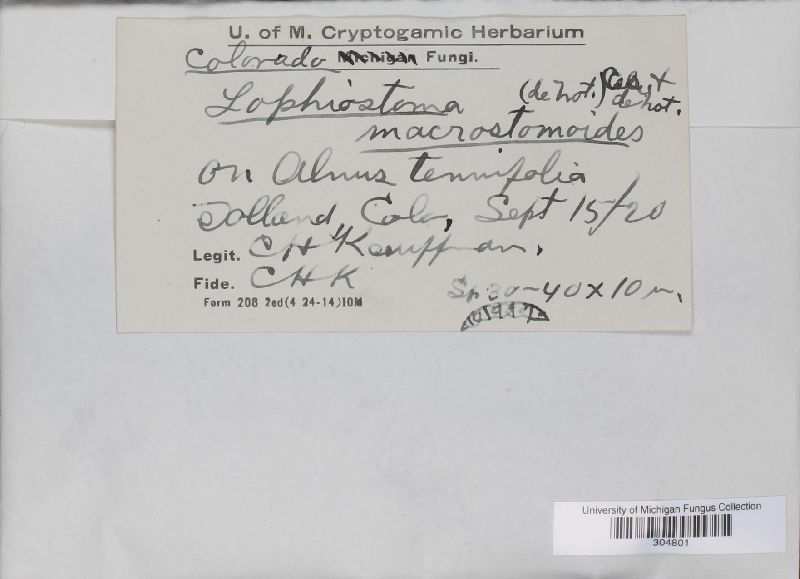 U. of M. Cryptogamic Herbarium
Colorado Michigan Fungi.
Lophiostoma (de Not.) Ces. & de Not.
macrostomoides
on Alnus tenuifolia
Tolland, Colo, Sept 15/20
Legit. C H Kauffman.
Fide. C H K
Form 208 2ed(4 24-14)10M
Sp 30-40 x 10 m.
University of Michigan Fungus Collection
304801